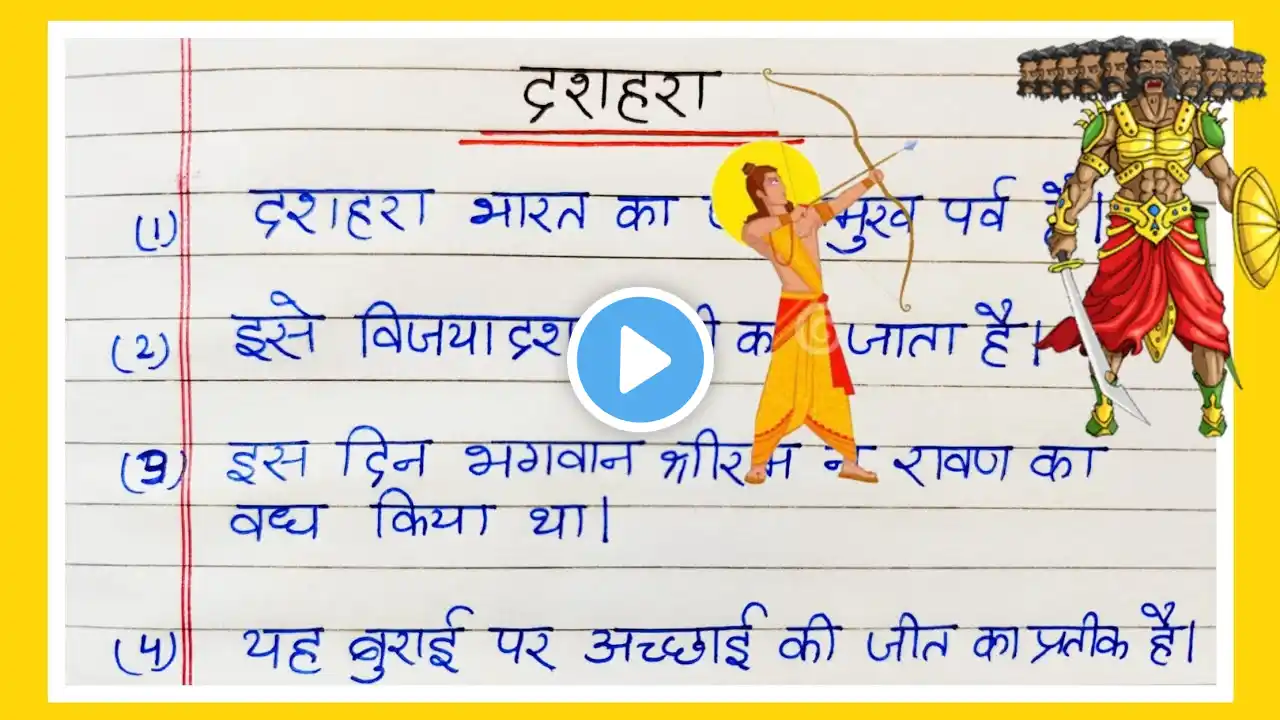 दशहरा
(1) दशहरा भारत का मुख पर्व है।
(2) इसे जाता है।
(3) इस दिन भगवान श्रीराम ने रावण का
वध किया था।
(4) यह बुराई पर अच्छाई की जीत का प्रतीक है।